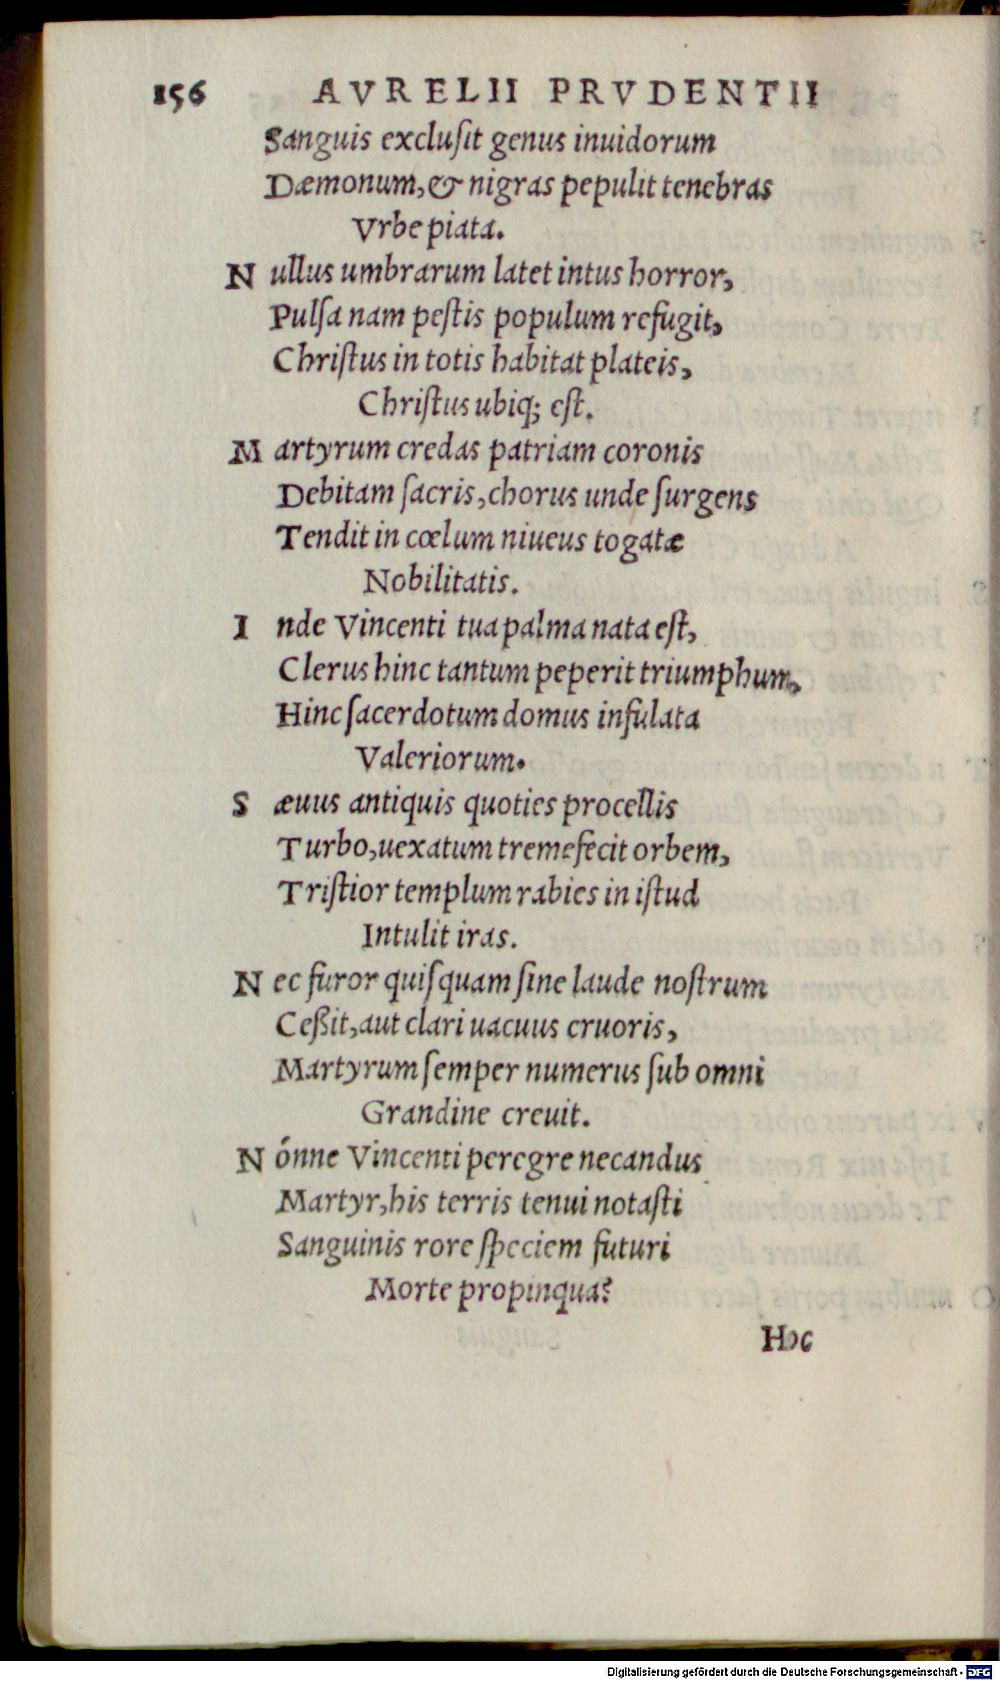 156 AVRELII PRVDENTII
Sanguis excluſit genus inuidorum
Dæmonum, & nigras pepulit tenebras
Vrbe piata.
N ullus umbrarum latet intus horror,
Pulſa nam peſtis populum refugit,
Chriſtus in totis habitat plateis,
Chriſtus ubiq; eſt.
M artyrum credas patriam coronis
Debitam ſacris, chorus unde ſurgens
Tendit in cœlum niueus togatæ
Nobilitatis.
I nde Vincenti tua palma nata eſt,
Clerus hinc tantum peperit triumphum,
Hinc ſacerdotum domus infulata
Valeriorum.
S æuus antiquis quoties procellis
Turbo, uexatum tremefecit orbem,
Triſtior templum rabies in iſtud
Intulit iras.
N ec furor quiſquam ſine laude noſtrum
Ceßit, aut clari uacuus cruoris,
Martyrum ſemper numerus ſub omni
Grandine creuit.
N ónne Vincenti peregre necandus
Martyr, his terris tenui notaſti
Sanguinis rore ſpeciem futuri
Morte propinqua?
Hoc
Digitalisierung gefördert durch die Deutsche Forschungsgemeinschaft - DFG